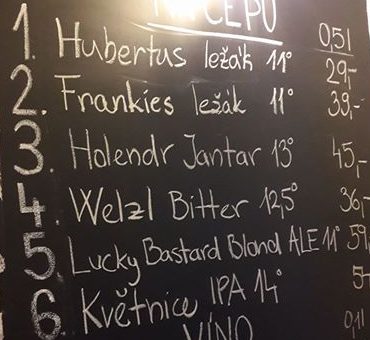 ČEPU
0,5l
1. Hubertus ležák 11° 29,-
2. Frankies ležák 11° 39,-
3. Holendr Jantar 13° 45,-
4. Welzl Bitter 12,5° 36,-
5. Lucky Bastard Blond ALE 11° 59,
6. Květnice IPA 14°
VÍNO 0,1l